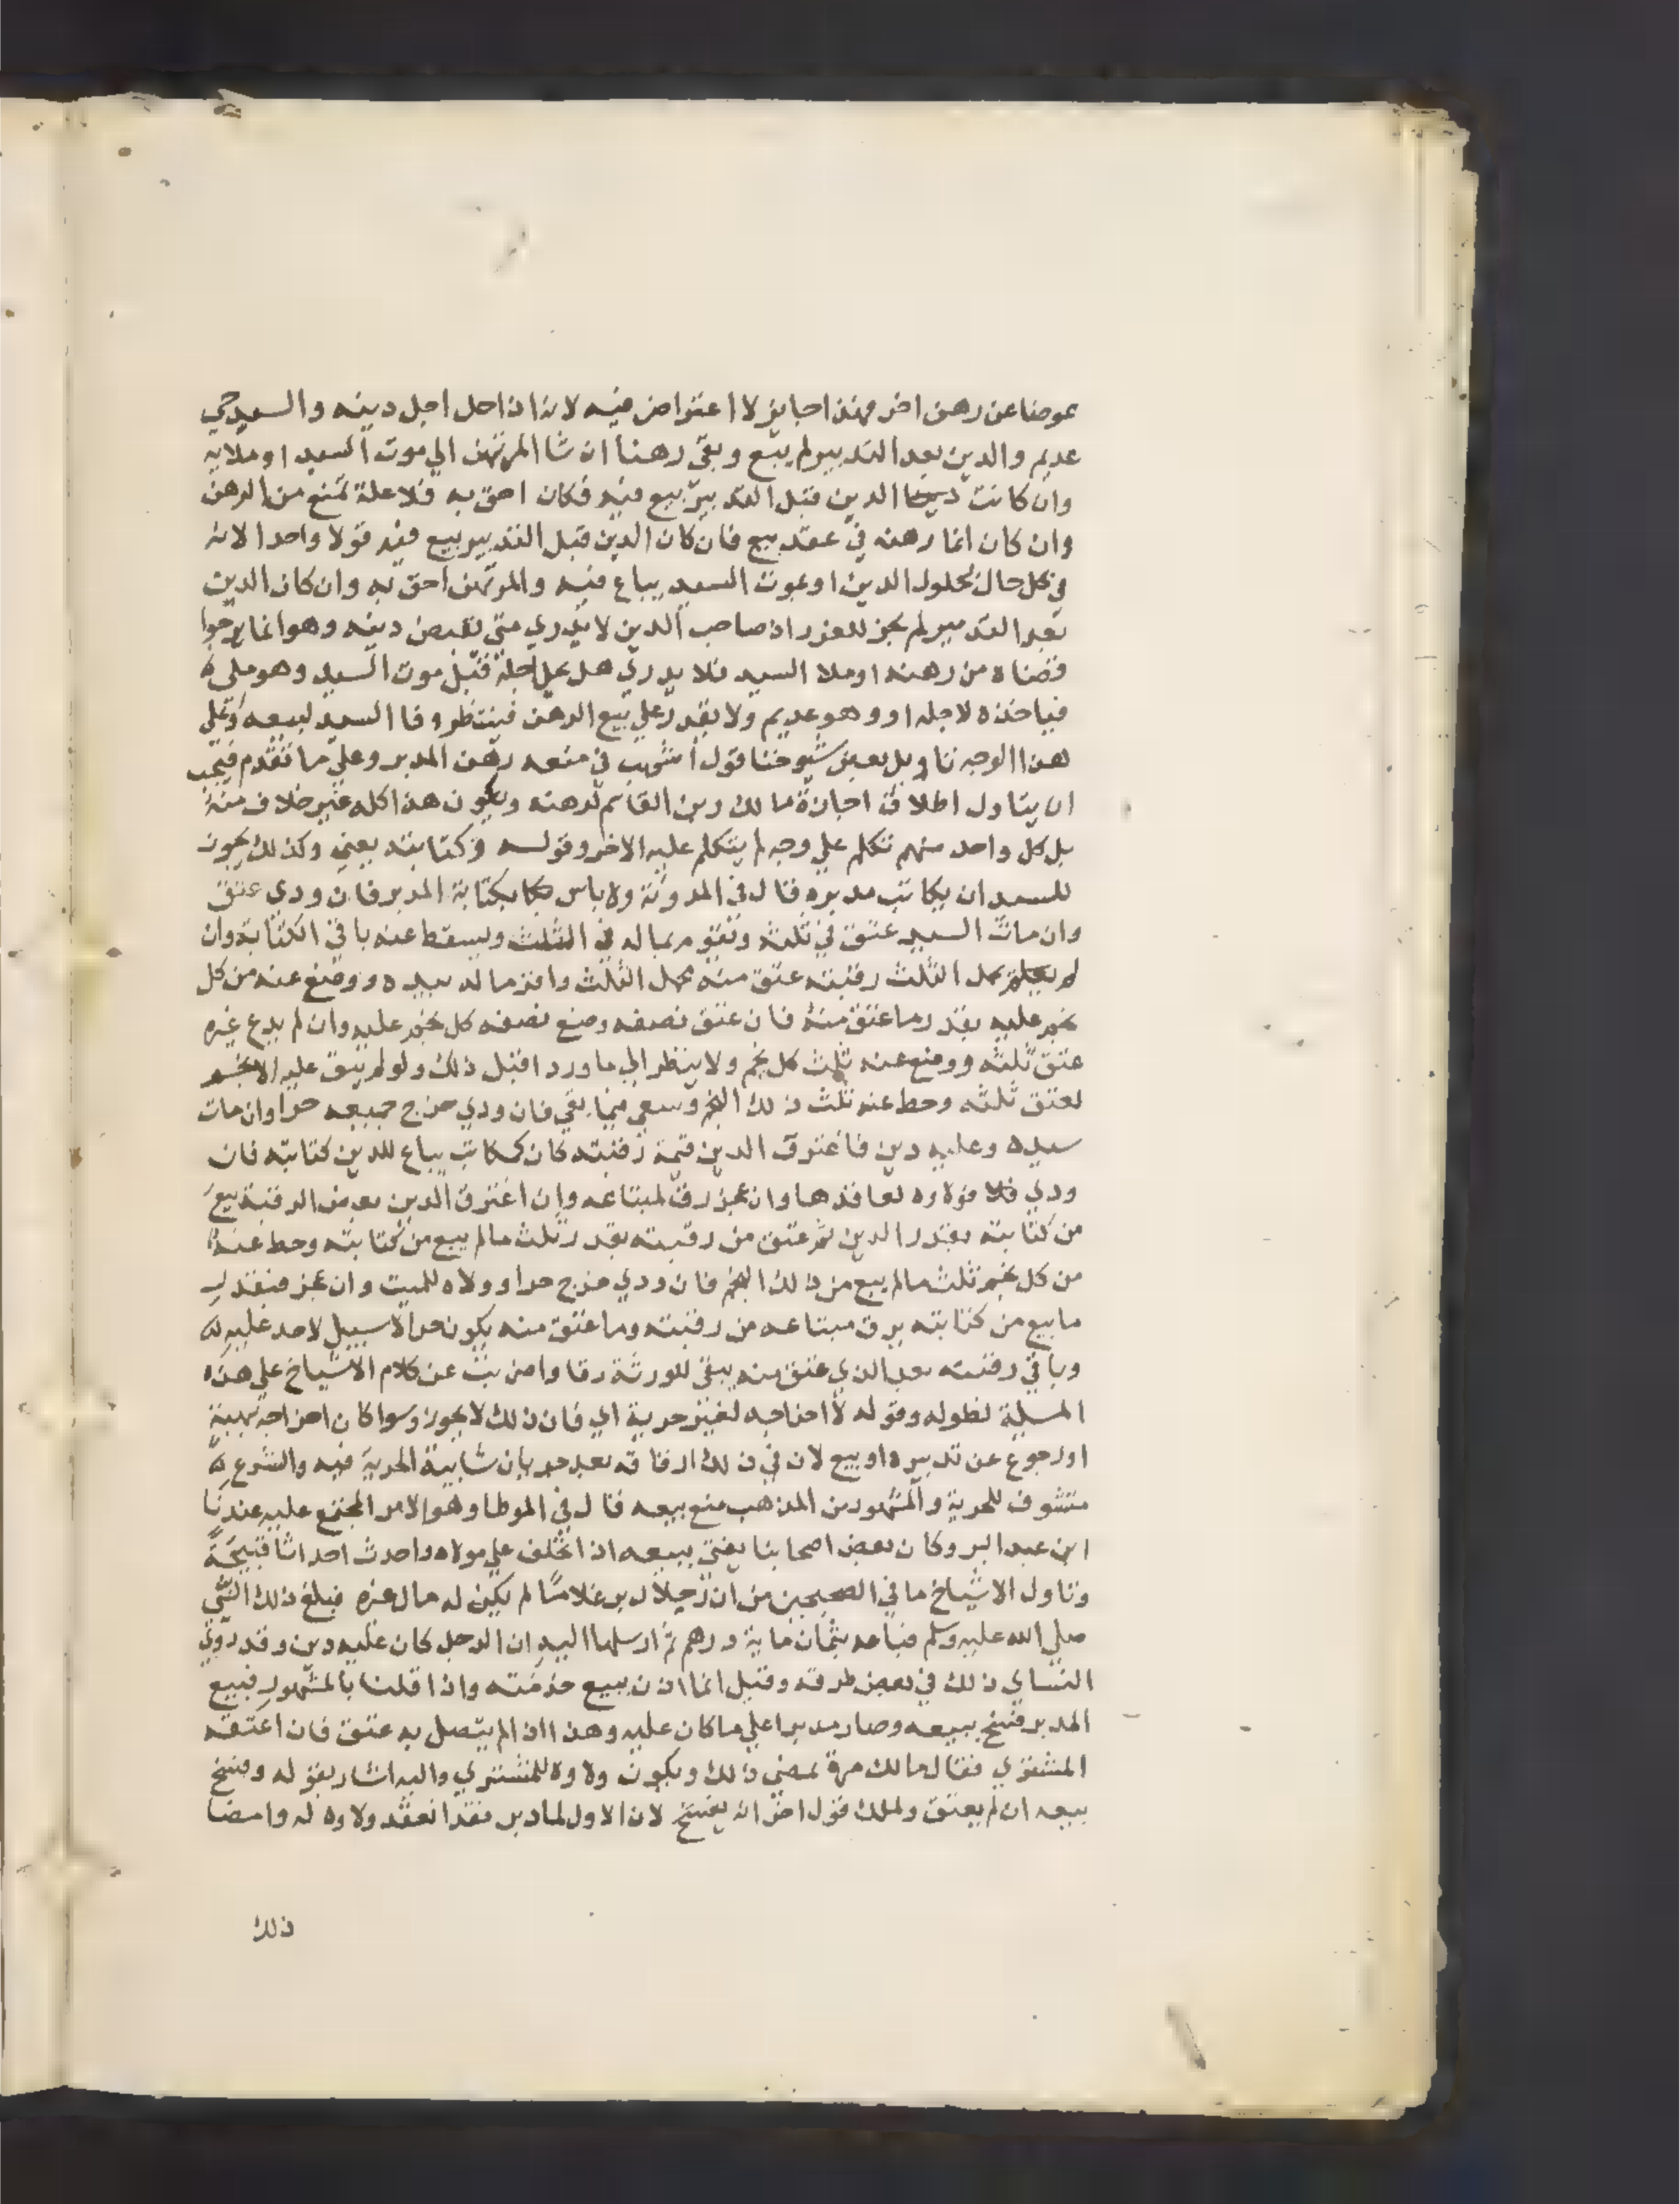 عوضا عن رهن اخر فهذا جايز لا اعتراض فيه لانه اذا حل اجل دينه والسيد حي
عديم والدين بعد التدبير لم يبع وبقي رهنا ان شا المرتهن الي موت السيد او ملايه
وان كانت الدين قبل التدبير بيع فيه فكان احق به فلا علة تمنع من الرهن
وان كان انما رهنه في عقد بيع فان كان الدين قبل التدبير بيع فيه قولا واحدا لانه
في كل حال لحلول الدين او بموت السيد يباع فيه والمرتهن احق به وان كان الدين
بعد التدبير لم يجز للغرر اذ صاحب الدين لا يدري متي يقبض دينه وهو انما يرجوا
قضاه من رهنه او ملا السيد فلا يدري هل يحل اجله قبل موت السيد وهو ملي
فياخذه لاجله او وهو عديم ولا يقدر علي بيع الرهن فينتظر وفا السيد لبيعه وعلي
هذا الوجه تاويل بعض شيوخنا قول اشهب في منعه رهن المدبر وعلي ما تقدم فيجب
ان يتاول اطلاق اجازة مالك وبن القاسم لرهنه ويكون هذا كله غير خلاف منه
بل كل واحد منهم تكلم علي وجه لم يتكلم عليه الاخر وقولــه وكتابته يعني وكذلك يجوز
للسيد ان يكاتب مدبره قال في المدونة ولا باس بكتابة المدبر فان ودي عتق
وان مات السيد عتق في ثلثه ويقوم بماله في الثلث ويسقط عنه باقي الكتابة وان
لم يحمل الثلث رقبته عتق منه محمل الثلث واقر ماله بيده ووضع عنه من كل
نجم عليه بقدر ما عتق منه فان عتق نصفه وضع نصفه كل نجم عليه وان لم يدع غيره
عتق ثلثه ووضع عنه ثلث كل نجم ولا ينظر الي ما ورد اقبل ذلك ولو لم يبق عليه الا نجم
لعتق ثلثه وحط عنه ثلث ذلك النجم وسعي فيما بقي فان ودي خرج جميعه حرا وان مات
سيده وعليه دين فاغترق الدين قيمة رقبته كان كمكاتب يباع للدين كتابته فان
ودي فلا ولاوه لعاقدها وان عجز رق لمبتاعه وان اغترق الدين بعض الرقبة بيع
من كتابته بقدر الدين ثم عتق من رقبته بقدر ثلث ما لم يبع من كتابته وحط عنه
من كل نجم ثلث ما لم يبع من ذلك النجم فان ودي خرج حرا وولاه للميت وان عجز فبقدر
ما بيع من كتابته يرق مبتاعه من رقبته وما عتق منه يكون حرا لا سبيل لاحد عليه
وباقي رقبته بعد الذي عتق منه يبقي للورثة رقا واضربت عن كلام الاشياخ علي هذه
المسلة لطوله وقوله لا اخراجه لغير حرية اي فان ذلك لا يجوز وسوا كان اخراجه بهبة
او رجوع عن تدبيره او بيع لان في ذلك ارقاقه بعد جريان شايبة الحرية فيه والشرع
متشوف للحرية والمشهور من المذهب منع بيعه قال في الموطا وهو الامر المجتمع عليه عندنا
ابن عبد البر وكان بعض اصحابنا يفتي ببيعه اذا تخلف علي مولاه واحدث احداثا قبيحة
وتاول الاشياخ ما في الصحيحين من ان رجلا دبر غلاما لم يكن له مال غيره فبلغ ذلك النبي
صلي الله عليه وسلم فباعه بثمان ماية درهم ثم ارسلها اليه ان الرجل كان عليه دين وقد روي
النساي ذلك في بعض طرقه وقيل انما اذن ببيع خدمته واذا قلنا بالمشهور فبيع
المدبر فسخ بيعه وصار مدبرا علي ما كان عليه وهذا اذا لم يتصل به عتق فان اعتقه
المشتري فقال مالك مرة يمضي ذلك ويكون ولاوه للمشتري واليه اشار بقوله وفسخ
بيعه ان لم يعتق ولملك قول اخر انه يفسخ لان الاول لما دبر فقد انعقد ولاوه له وامضا
ذلك